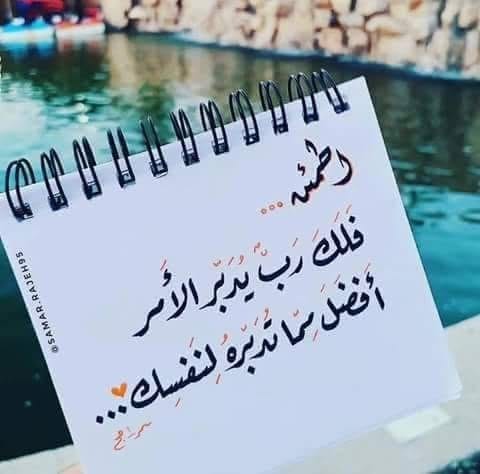 اطمئن ...
فَلَكَ رَبٌّ يُدَبّر الأَمر
أَفضَلَ مِمّا تُدَبّرهُ لِنَفسِك...
@SAMAR.RAJEH95